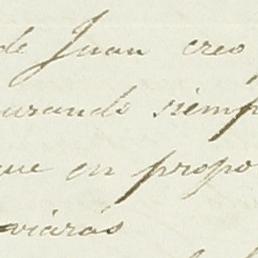 de Juan creo
urando siemp
que en propo
viarás